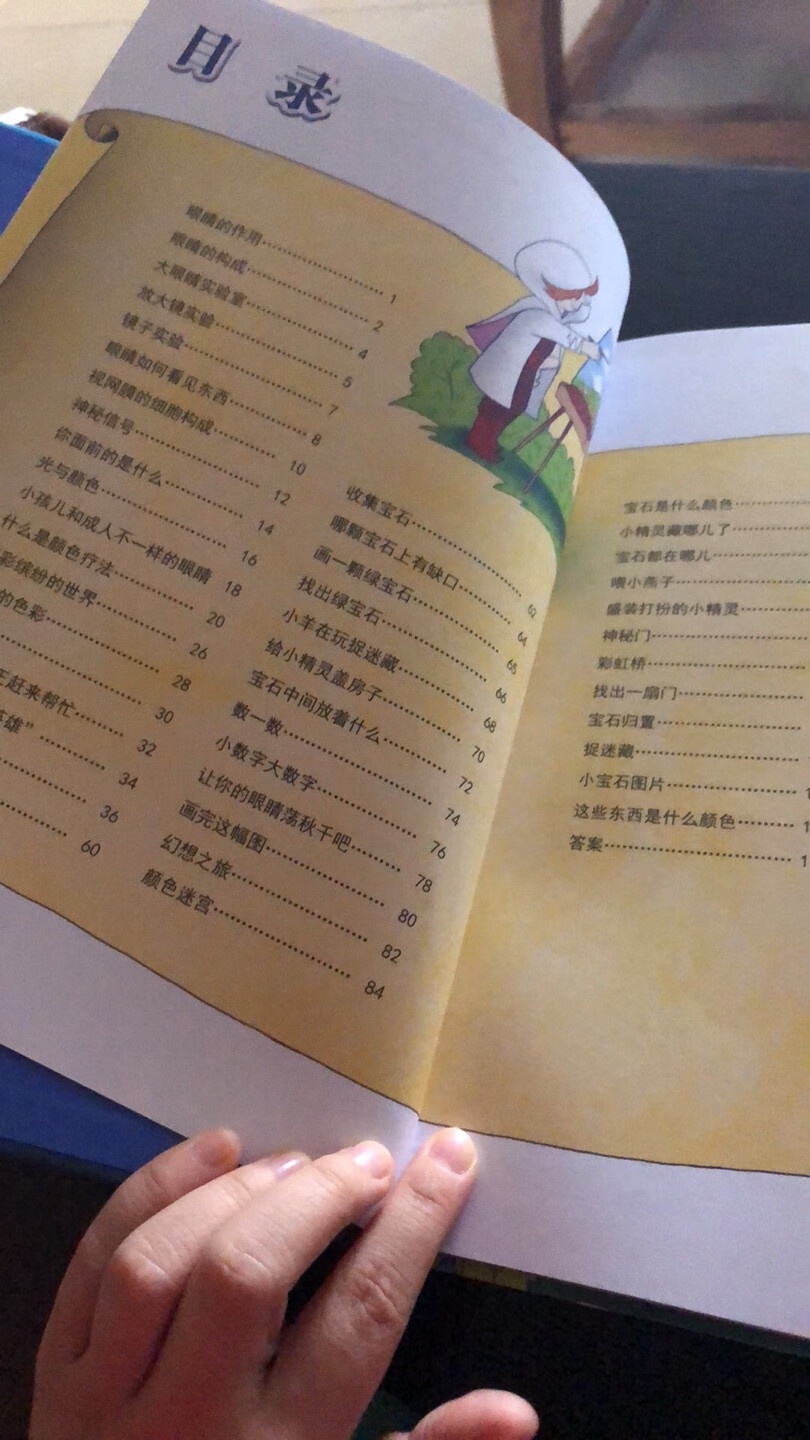 目 录
眼睛的作用……………………1
眼睛的构成……………………2
大眼睛实验室…………………4
放大镜实验……………………5
镜子实验………………………7
眼睛如何看见东西……………8
视网膜的细胞构成……………10
神秘信号………………………12
你面前的是什么………………14
光与颜色………………………16
小孩儿和成人不一样的眼睛 18
什么是颜色疗法………………20
彩缤纷的世界…………………26
的色彩…………………………28
…………………………………30
赶来帮忙………………………32
英雄”…………………………34
…………………………………36
…………………………………60
收集宝石………………………62
哪颗宝石上有缺口……………64
画一颗绿宝石…………………65
找出绿宝石……………………66
小羊在玩捉迷藏………………68
给小精灵盖房子………………70
宝石中间放着什么……………72
数一数…………………………74
小数字大数字…………………76
让你的眼睛荡秋千吧…………78
画完这幅图……………………80
幻想之旅………………………82
颜色迷宫………………………84
宝石是什么颜色…………
小精灵藏哪儿了…………
宝石都在哪儿……………
喂小燕子…………………
盛装打扮的小精灵………
神秘门……………………
彩虹桥……………………
找出一扇门………………
宝石归置…………………
捉迷藏……………………
小宝石图片………………1
这些东西是什么颜色……1
答案………………………1